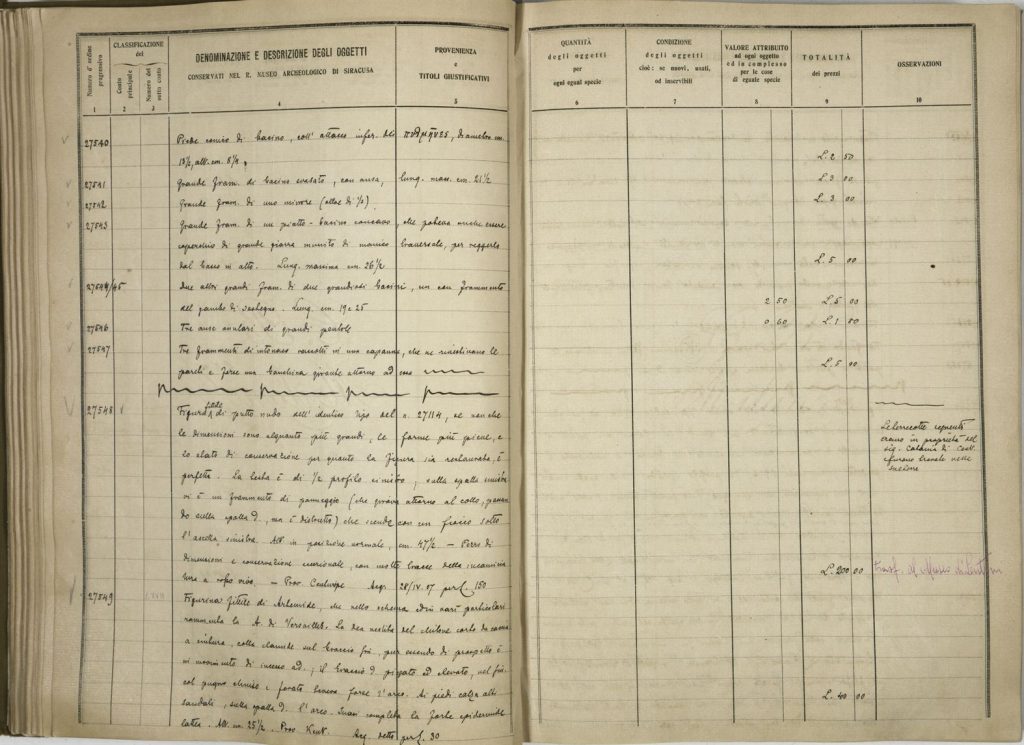 Numero d'ordine progressivo
CLASSIFICAZIONE del
Conto principale
Numero del sotto conto
DENOMINAZIONE E DESCRIZIONE DEGLI OGGETTI
CONSERVATI NEL R. MUSEO ARCHEOLOGICO DI SIRACUSA
PROVENIENZA
e
TITOLI GIUSTIFICATIVI
QUANTITÀ
degli oggetti
per
ogni eguali specie
CONDIZIONE
degli oggetti
cioè: se nuovi, usati,
od inservibili
VALORE ATTRIBUITO
ad ogni oggetto
ed in complesso
per le cose
di eguale specie
TOTALITÀ
dei prezzi
OSSERVAZIONI
1 2 3 4 5 6 7 8 9 10
27540 Piede conico di bacino, coll'attacco infer. del πυθμήν, diametro cm.
13½, alt. cm. 8½, L. 2 50
27541 Grande fram. di bacino svasato, con ansa, lung. mass. cm. 21½ L. 3 00
27542 Grande fram. di uno minore L. 3 00
27543 Grande fram. di un piatto-bacino concavo, che poteva anche essere
coperchio di grande giarra munito di manico trasversale, per reggerlo
dal basso in alto. Lung. massima cm. 26½ L. 5 00
27544/45 Due altri grandi fram. di due grandiosi bacini, un con frammento
del gambo di sostegno. Lung. cm. 19 e 25 2 50 L. 5 00
27546 Tre anse anulari di grandi pentole 0 60 L. 1 80
27547 Tre frammenti di intonaco raccolti in una capanna, che ne rivestivano le
pareti e forse una banchina girante attorno ad essa L. 5 00
27548 Figura fittile di putto nudo dell'identico tipo del n. 27114, se non che
le dimensioni sono alquanto più grandi, le forme più piene, e
lo stato di conservazione per quanto la figura sia restaurata, è
perfetto. La testa è di ½ profilo sinistro; sulla spalla sinistra
vi è un frammento di panneggio (che girava attorno al collo, passan
do sulla spalla d., ma è distrutto) che scende con un fiocco sotto
l'ascella sinistra. Alt. in posizione normale, cm. 47½ — Pezzo di
dimensioni e conservazione eccezionale, con molte tracce della incarna
tura a rosso vivo. — Prov. Centuripe Acq. 28/IV.07 per L. 150 L. 200 00
Le terrecotte seguenti
erano in proprietà del
sig. Calamia di Cent.
furono trovate nelle
27549 Figurina fittile di Artemide, che nello schema
rammenta la A. di Versailles. La dea vestita del chitone corto
a cintura, colla clamide sul braccio sin., pur essendo di prospetto è
in movimento di incesso a d.; il braccio d. piegato ed elevato, nel
col pugno chiuso e forato teneva forse l'arco. Ai piedi calza alti
sandali, sulla spalla d. l'arco. Quasi completa la forte epidermide
lattea. Alt. cm. 25½. Prov. Cent. Acq. detto per L. 30 L. 40 00